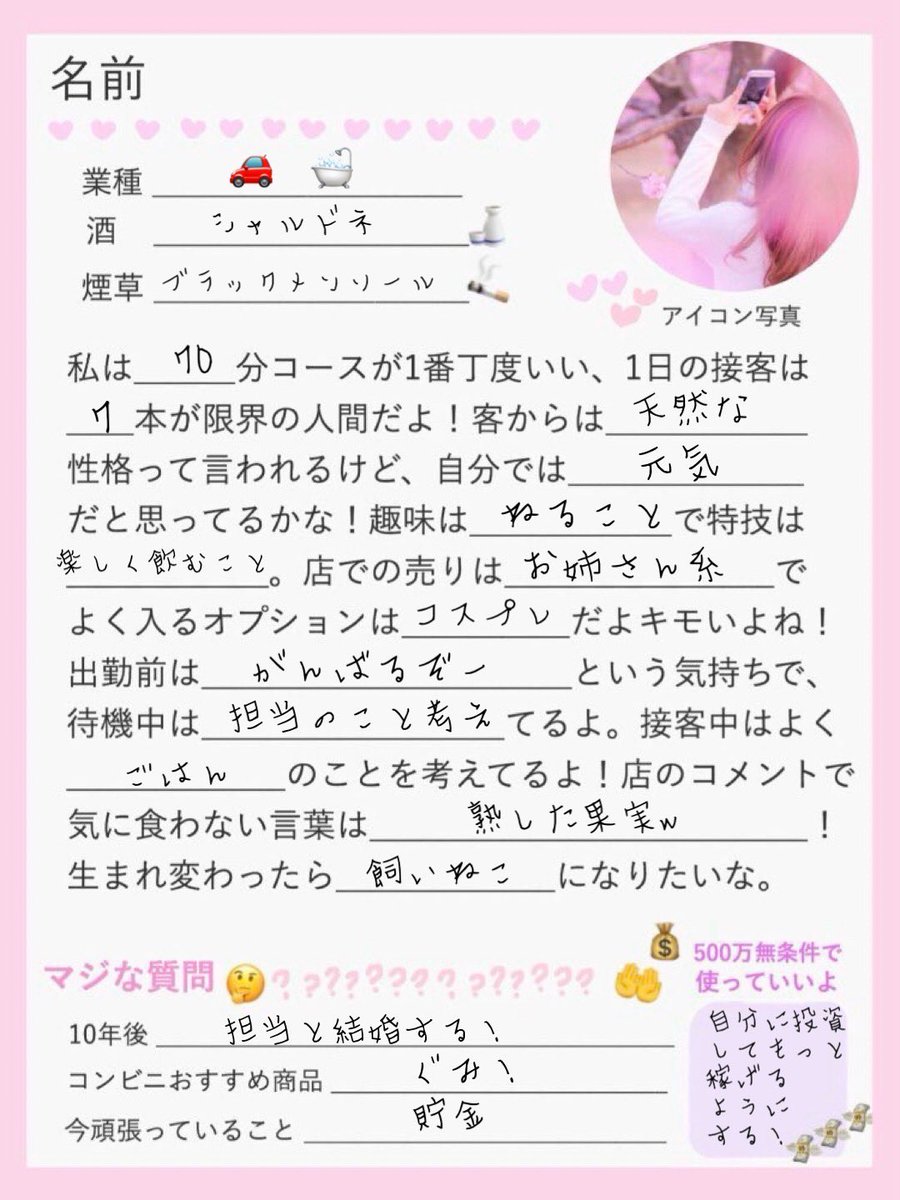 名前
業種 🚗 🛁
酒 シャルドネ
煙草 ブラックメンソール
アイコン写真
私は70分コースが1番丁度いい、1日の接客は
7本が限界の人間だよ！客からは天然な
性格って言われるけど、自分では元気
だと思ってるかな！趣味はねることで特技は
楽しく飲むこと。店での売りはお姉さん系で
よく入るオプションはコスプレだよキモいよね！
出勤前はがんばるぞーという気持ちで、
待機中は担当のこと考えてるよ。接客中はよく
ごはんのことを考えてるよ！店のコメントで
気に食わない言葉は熟した果実w！
生まれ変わったら飼いねこになりたいな。
マジな質問🤔?????????????
10年後 担当と結婚する！
コンビニおすすめ商品 ぐみ！
今頑張っていること 貯金
500万無条件で
使っていいよ
自分に投資
してもっと
稼げる
ように
する！